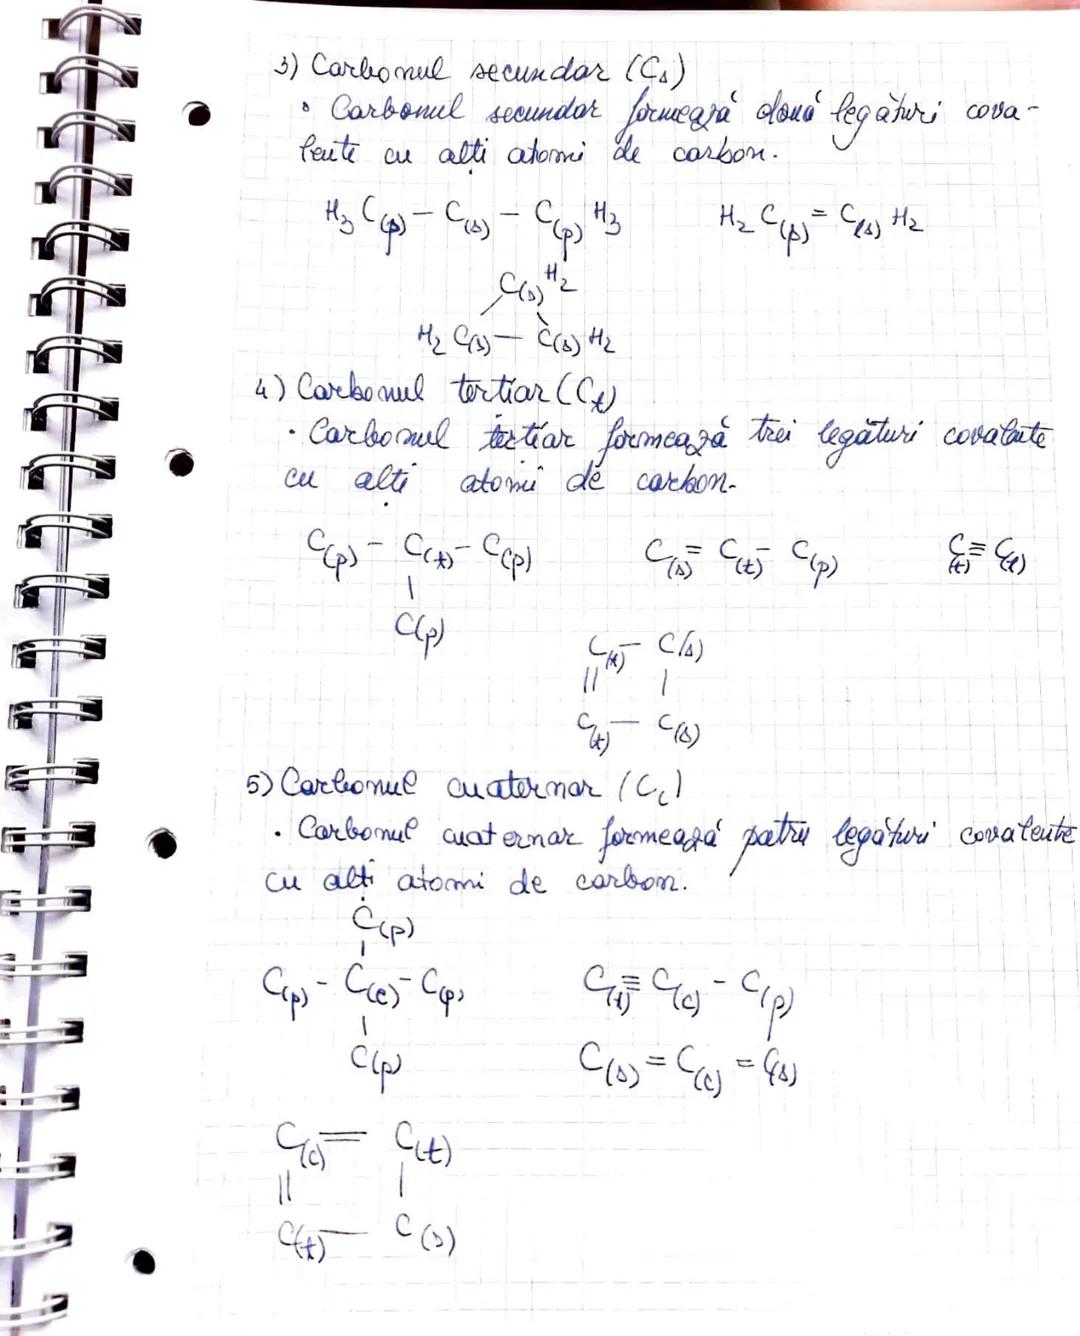 3) Carbonul secundar (Cs)
• Carbonul secundar formează două legături cova-
lente cu alți atomi de carbon.
H3 C(p) – C(s) – C(p) H3    H2 C(s) = C(s) H2
C(s) H2
H2 C(s) — C(s) H2
4) Carbonul terțiar (Ct)
• Carbonul terțiar formează trei legături covalente
cu alți atomi de carbon.
C(p) – C(t) – C(p)    C(s) = C(t) – C(p)    C(t) ≡ C(t)
|
C(p)
C(t) – C(s)
||    |
C(t) — C(s)
5) Carbonul cuaternar (Cc)
• Carbonul cuaternar formează patru legături covalente
cu alți atomi de carbon.
C(p)
|
C(p) – C(c) – C(p)    C(t) ≡ C(c) – C(p)
|
C(p)    C(s) = C(c) = C(s)
C(c) = C(t)
||    |
C(t) — C(s)